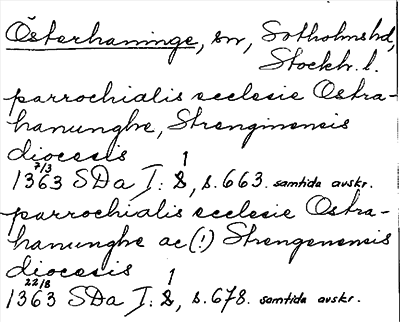 Österhaninge, sn, Sotholmshd,
Stockh. l.
parrochialis ecclesie Ostra-
hanunghe, Strenginensis
diocesis 1
1363 7/3 SDa I: 8, s. 663. samtida avskr.
parrochialis ecclesie Ostra-
hanunghe ac (!) Strengenensis
diocesis 1
1363 22/8 SDa I: 8, s. 678. samtida avskr.